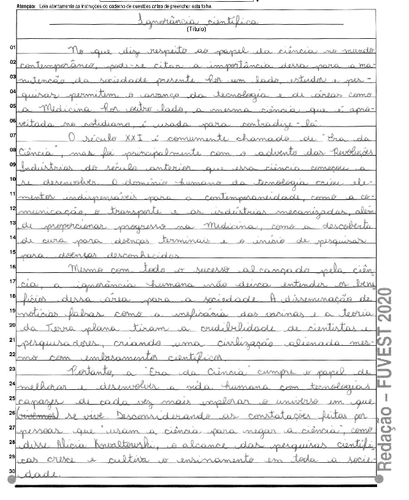 Atenção: Leia atentamente as instruções do caderno de questões antes de preencher esta folha.
Ignorância científica
(Título)
01 No que diz respeito ao papel da ciência no mundo
02 contemporâneo, pode-se citar a importância dessa para a ma-
03 nutenção da sociedade presente. Por um lado, estudos e pes-
04 quisas permitem o avanço da tecnologia e de áreas como
05 a Medicina. Por outro lado, a mesma ciência que é apro-
06 veitada no cotidiano, é usada para contradizê-la.
07 O século XXI é comumente chamado de "Era da
08 Ciência", mas foi principalmente com o advento das Revoluções
09 Industriais do século anterior que essa ciência começou a
10 se desenvolver. O domínio humano da tecnologia criou ele-
11 mentos indispensáveis para a contemporaneidade, como a co-
12 municação, o transporte e as indústrias mecanizadas, além
13 de proporcionar progresso na Medicina, como a descoberta
14 de cura para doenças terminais e o início de pesquisas
15 para doenças desconhecidas.
16 Mesmo com todo o sucesso alcançado pela ciên-
17 cia, a ignorância humana não deixa entender os bene-
18 fícios dessa área para a sociedade. A disseminação de
19 notícias falsas como a ineficácia das vacinas e a teoria
20 da Terra plana, tiram a credibilidade de cientistas e
21 pesquisadores, criando uma civilização alienada mes-
22 mo com embasamentos científicos.
23 Portanto, a "Era da Ciência" cumpre o papel de
24 melhorar e desenvolver a vida humana com tecnologias
25 capazes de cada vez mais explorar o universo em que
26 se vive. Desconsiderando as constatações feitas por
27 pessoas que "usam a ciência para negar a ciência", como
28 disse Alicia Kowaltowski, o alcance das pesquisas científi-
29 cas cresce e cultiva o ensinamento em toda a socie-
30 dade.
Redação – FUVEST 2020